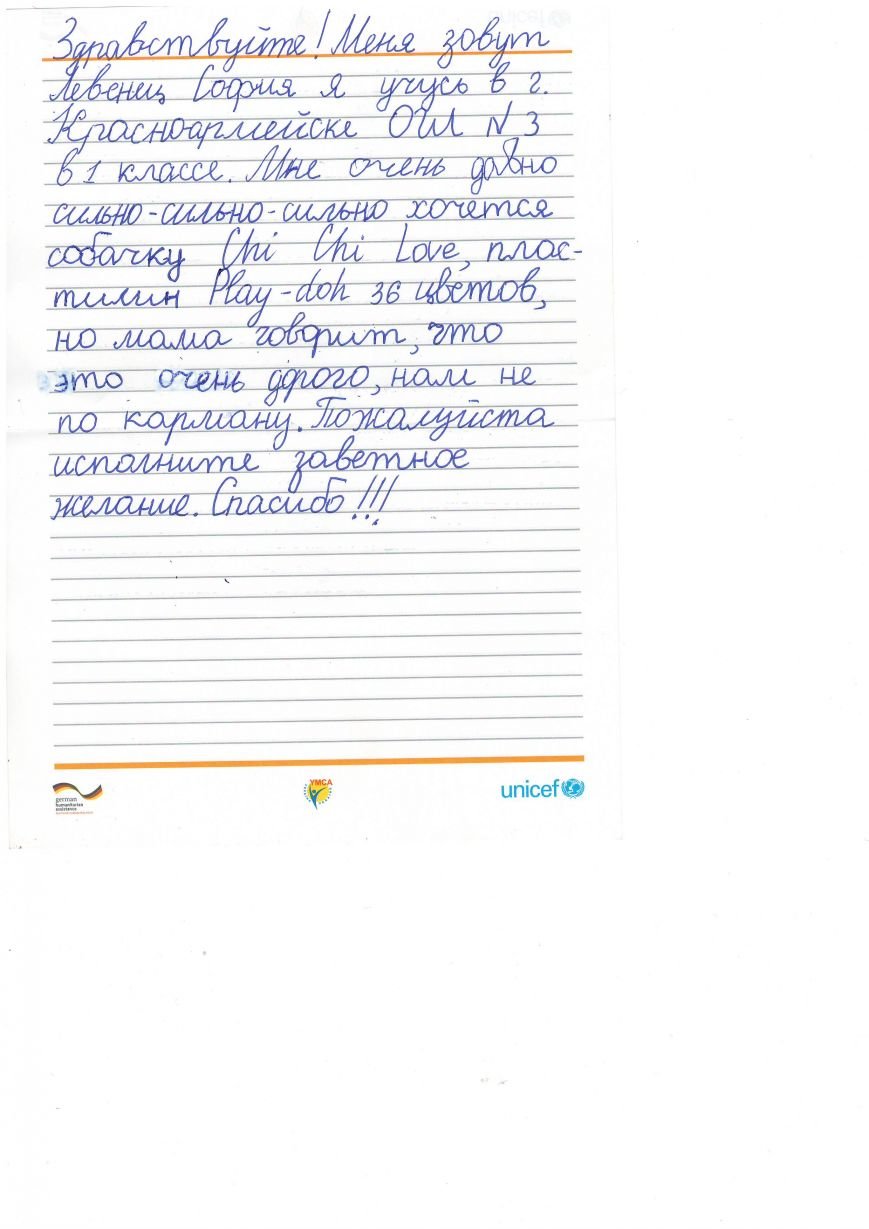 Здравствуйте! Меня зовут
Левенец София я учусь в г.
Красноармейске ОШ N 3
в 1 классе. Мне очень давно
сильно-сильно-сильно хочется
собачку Chi Chi Love, плас-
тилин Play-doh 36 цветов,
но мама говорит, что
это очень дорого, нам не
по карману. Пожалуйста
исполните заветное
желание. Спасибо!!!
german
humanitarian
assistance
YMCA
unicef